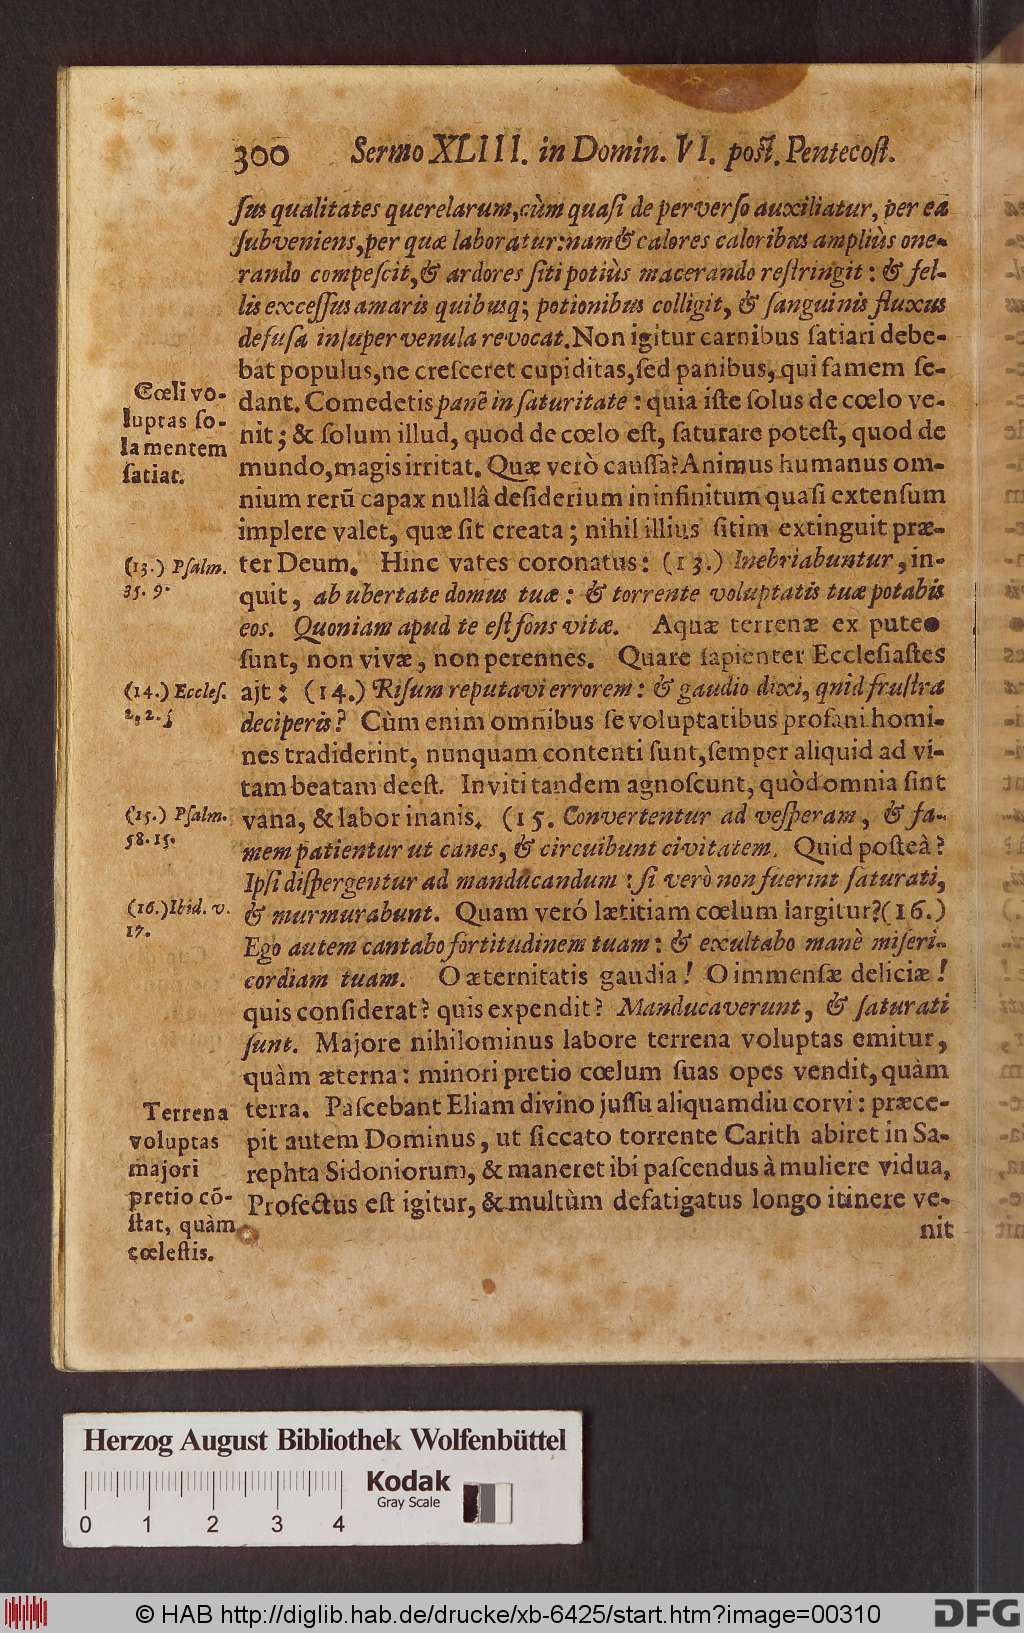 300 Sermo XLIII. in Domin. VI. post. Pentecost.
sus qualitates querelarum, cùm quasi de perverso auxiliatur, per ea
subveniens, per quæ laboratur: nam & calores caloribus ampliùs one-
rando compescit, & ardores siti potiùs macerando restringit: & fel-
lis excessus amaris quibusq; potionibus colligit, & sanguinis fluxus
defusa insuper venula revocat. Non igitur carnibus satiari debe-
bat populus, ne cresceret cupiditas, sed panibus, qui famem se-
dant. Comedetis panē in saturitate: quia iste solus de cœlo ve-
nit; & solum illud, quod de cœlo est, saturare potest, quod de
mundo, magis irritat. Quæ verò caussa? Animus humanus om-
nium rerū capax nullâ desiderium in infinitum quasi extensum
implere valet, quæ sit creata; nihil illius sitim extinguit præ-
ter Deum. Hinc vates coronatus: (13.) Inebriabuntur, in-
quit, ab ubertate domus tuæ: & torrente voluptatis tuæ potabis
eos. Quoniam apud te est fons vitæ. Aquæ terrenæ ex puteo
sunt, non vivæ, non perennes. Quare sapienter Ecclesiastes
ajt: (14.) Risum reputavi errorem: & gaudio dixi, quid frustra
deciperis? Cùm enim omnibus se voluptatibus profani homi-
nes tradiderint, nunquam contenti sunt, semper aliquid ad vi-
tam beatam deest. Inviti tandem agnoscunt, quòd omnia sint
vana, & labor inanis. (15. Convertentur ad vesperam, & fa-
mem patientur ut canes, & circuibunt civitatem. Quid posteà?
Ipsi dispergentur ad manducandum: si verò non fuerint saturati,
& murmurabunt. Quam veró lætitiam cœlum largitur? (16.)
Ego autem cantabo fortitudinem tuam: & exultabo manè miseri-
cordiam tuam. O æternitatis gaudia! O immensæ deliciæ!
quis considerat? quis expendit? Manducaverunt, & saturati
sunt. Majore nihilominus labore terrena voluptas emitur,
quàm æterna: minori pretio cœlum suas opes vendit, quàm
terra. Pascebant Eliam divino jussu aliquamdiu corvi: præce-
pit autem Dominus, ut siccato torrente Carith abiret in Sa-
rephta Sidoniorum, & maneret ibi pascendus à muliere vidua,
Profectus est igitur, & multùm defatigatus longo itinere ve-
nit
Cœli vo-
luptas so-
la mentem
satiat.
(13.) Psalm.
35. 9.
(14.) Eccles.
2, 2. j
(15.) Psalm.
58. 15.
(16.) Ibid. v.
17.
Terrena
voluptas
majori
pretio cō-
stat, quàm
cœlestis.
Herzog August Bibliothek Wolfenbüttel
Kodak
Gray Scale
0 1 2 3 4
© HAB http://diglib.hab.de/drucke/xb-6425/start.htm?image=00310
DFG